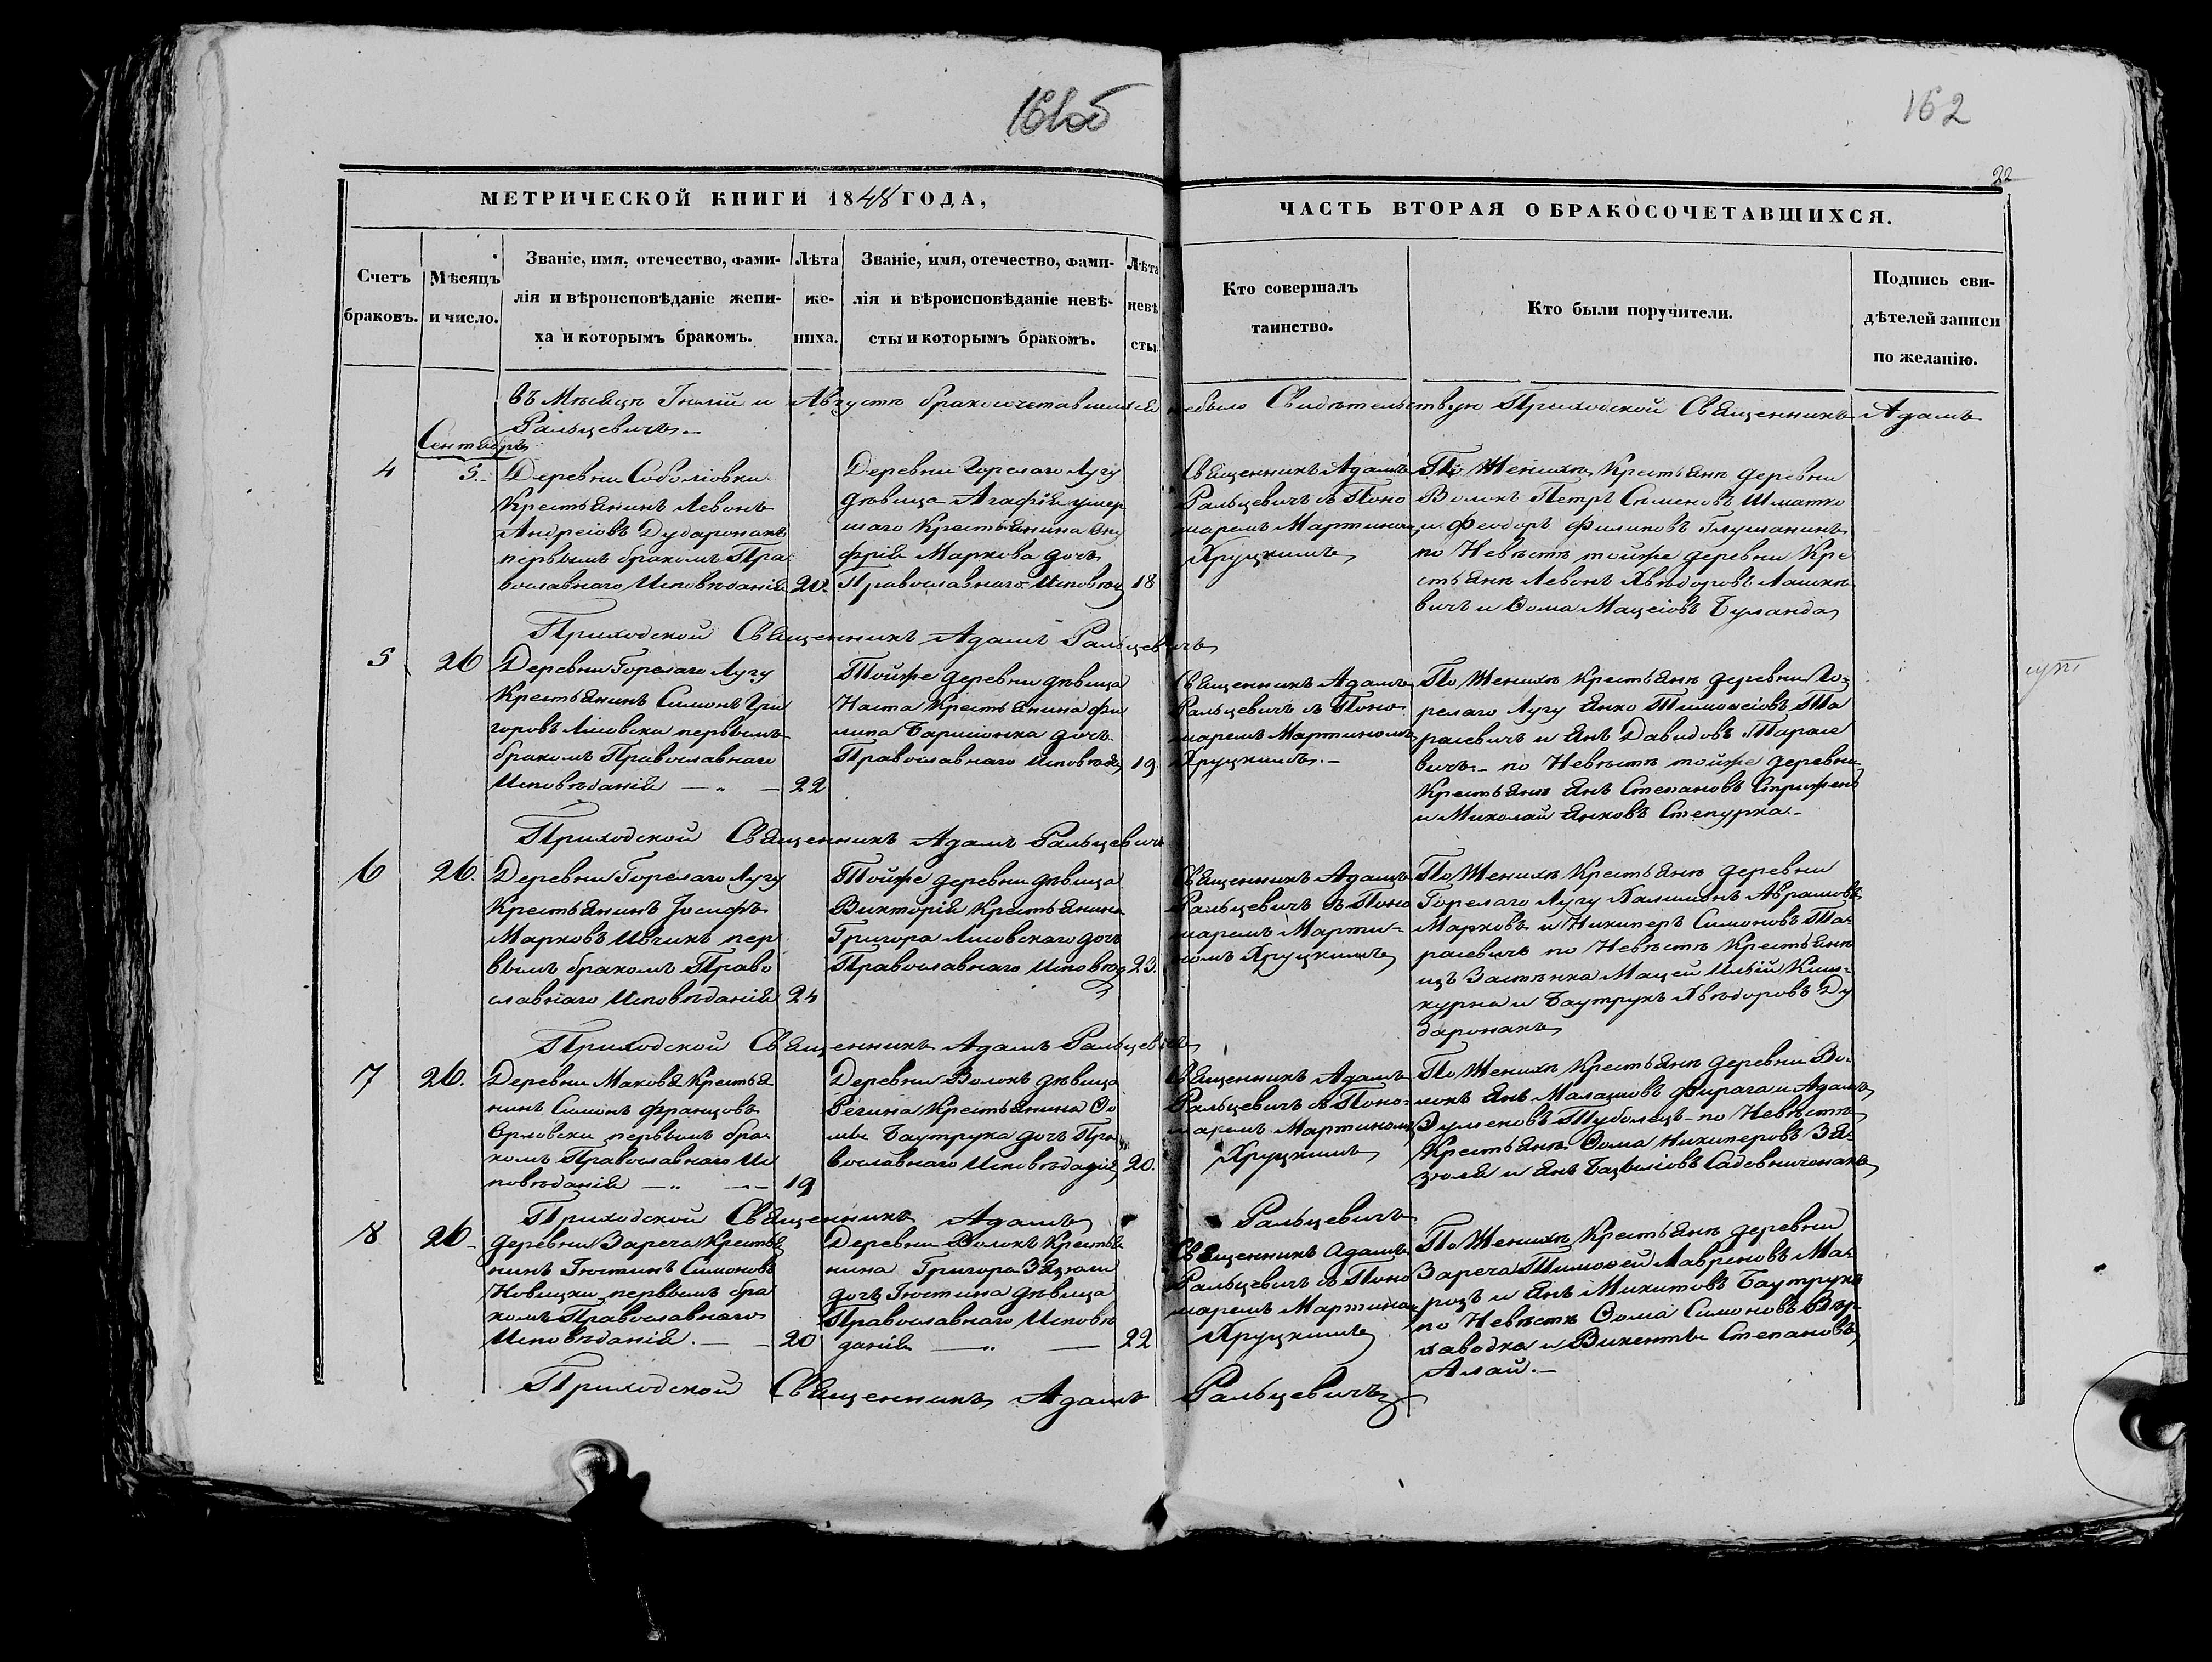 161об
162
22
МЕТРИЧЕСКОЙ КНИГИ 1848 ГОДА,
ЧАСТЬ ВТОРАЯ О БРАКОСОЧЕТАВШИХСЯ.
Счетъ браковъ.
Мѣсяцъ и число.
Званіе, имя, отечество, фами-
лія и вѣроисповѣданіе жени-
ха и которымъ бракомъ.
Лѣта
же-
ниха.
Званіе, имя, отечество, фами-
лія и вѣроисповѣданіе невѣ-
сты и которымъ бракомъ.
Лѣта
невѣ
сты.
Кто совершалъ
таинство.
Кто были поручители.
Подпись сви-
дѣтелей записи
по желанію.
Въ Мѣсяцѣ Іюлій и Августѣ бракосочетавшихся небыло Свидѣтельствую Приходской Священникъ Адамъ
Ральцевичъ.-
Сентябрь
4
5.-
Деревни Соболіовки
Крестьянинъ Левонъ
Андреіовъ Дударонакъ
первымъ бракомъ Пра
вославнаго Исповѣданія
20.
Деревни Горелаго Лугу
дѣвица Агафія умер
шаго Крестьянина Ону
фрія Маркова дочь
Православнаго Исповѣд
18
Священникъ Адамъ
Ральцевичъ съ Поно
маремъ Мартином
Хруцкимъ
По Женихѣ Крестьянѣ деревни
Волокъ Петръ Сыменовъ Шматко
и Феодоръ Филиповъ Глушанинъ
по Невѣстѣ тойже деревни Кре
стьянѣ Левонъ Хвѣдоровъ Лашке
вичъ и Ѳома Мацеіовъ Буланда
Приходской Священникъ Адамъ Ральцевичъ
5
26
Деревни Горелаго Лугу
Крестьянинъ Симонъ Гри
горовъ Лисовски первымъ
бракомъ Православнаго
Исповѣданія — „ —
22
Тойже деревни дѣвица
Наста Крестьянина Фи
липа Барисіонка дочь
Православнаго Исповѣда
19.
Священникъ Адамъ
Ральцевичъ съ Поно
маремъ Мартиномъ
Хруцкимъ.-
По Женихѣ Крестьянѣ деревни Го
релаго Лугу Янко Тимоѳеіовъ Та
расевичъ и Янъ Давидовъ Тарасе
вичъ - по Невѣстѣ тойже деревни
Крестьянѣ Янъ Степановъ Стрижень
и Миколай Янковъ Степурка.-
Приходской Священникъ Адамъ Ральцевичъ
6
26.
Деревни Горелаго Лугу
Крестьянинъ Іосифъ
Марковъ Ивчикъ пер
вымъ бракомъ Право
славнаго Исповѣданія
24
Тойже деревни дѣвица
Викторія Крестьянина
Григора Лисовскаго дочь
Православнаго Исповѣд
23.
Священникъ Адамъ
Ральцевичъ съ Поно
маремъ Марти-
номъ Хруцкимъ
По Женихѣ Крестьянѣ деревни
Горелаго Лугу Халимонъ Аврамовъ
Марковъ и Никиперъ Симоновъ Та-
расевичъ по Невѣстѣ Крестьянѣ
изъ Застѣнка Мацей Ильій
и Баутрукъ Хвѣдоровъ Ду
даронакъ
Приходской Священникъ Адамъ Ральцевичъ
7
26.
Деревни Маковья Крестья
нинъ Симонъ Францовъ
Орловски первымъ бра
комъ Православнаго Ис
повѣданія — „ —
19
Деревни Волокъ дѣвица
Регина Крестьянина Ѳо
мы Баутрука дочь Пра
вославнаго Исповѣданія
20.
Священникъ Адамъ
Ральцевичъ съ Поно-
маремъ Мартиномъ
Хруцкимъ
По Женихѣ Крестьянѣ деревни Во-
локъ Янъ Фирага и Адамъ
- по Невѣстѣ
Крестьянѣ Ѳома Никиперовъ Зя-
зюля и Янъ Базыліовъ Садовничонакъ
Приходской Священникъ Адамъ Ральцевичъ
8
26-
деревни Зареча Крестья
нинъ Іюстинъ Симоновъ
Новицки первымъ бра
комъ Православнаго
Исповѣданія. —
20
Деревни Волокъ Крестья
нина Григора Зязюли
дочь Іюстина дѣвица
Православнаго Исповѣ
данія — „ —
22
Священникъ Адамъ
Ральцевичъ съ Поно
маремъ Мартином
Хруцкимъ
По Женихѣ Крестьянѣ деревни
Зареча Тимоѳей Лавреновъ Ма-
розъ и Янъ Микитовъ Баутрукъ
по Невѣстѣ Ѳома Симоновъ
и Викентьи Степановъ
Алай.-
Приходской Священникъ Адамъ Ральцевичъ